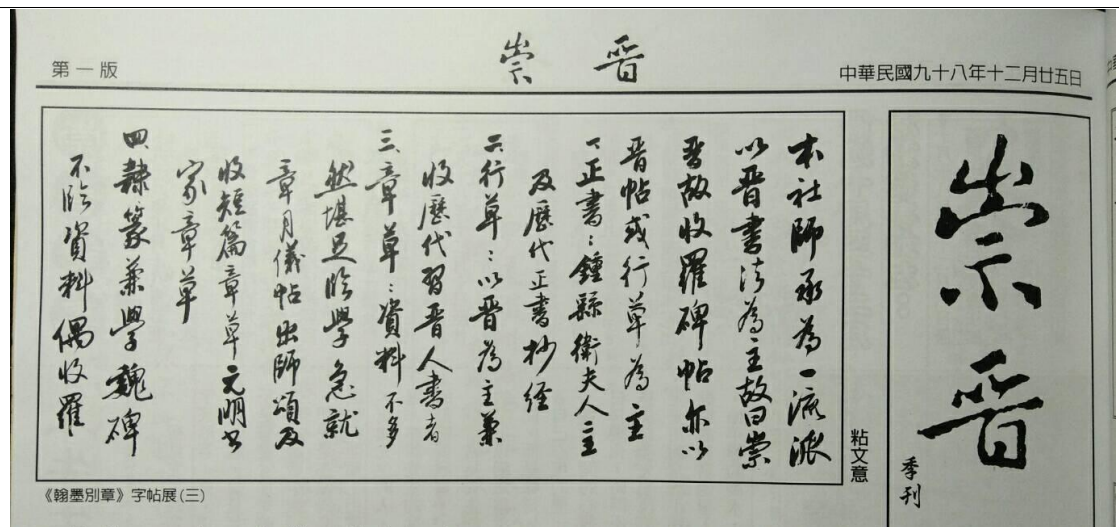 第一版
崇晉
中華民國九十八年十二月廿五日
崇晉
季刊
粘文意
本社師承為一流派
以晉書法為主故曰崇
晉故收羅碑帖亦以
晉帖或行草為主
一、正書：鍾繇衛夫人主
及歷代正書抄經
二、行草：以晉為主兼
收歷代習晉人書者
三、章草：資料不多
然堪足臨學急就
章月儀帖出師頌及
收短篇章草元明書
家章草
四、隸篆兼學魏碑
不臨資料偶收羅
《翰墨別章》字帖展(三)